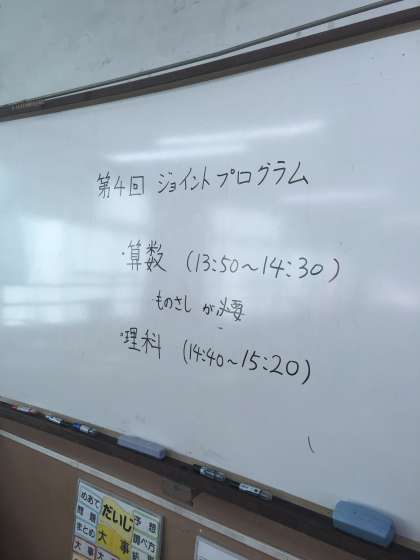 第4回 ジョイントプログラム
・算数 (13:50～14:30)
ものさし が 必要
・理科 (14:40～15:20)
めあて
問題
まとめ
大事
だいじ
大事
予想
調べ方